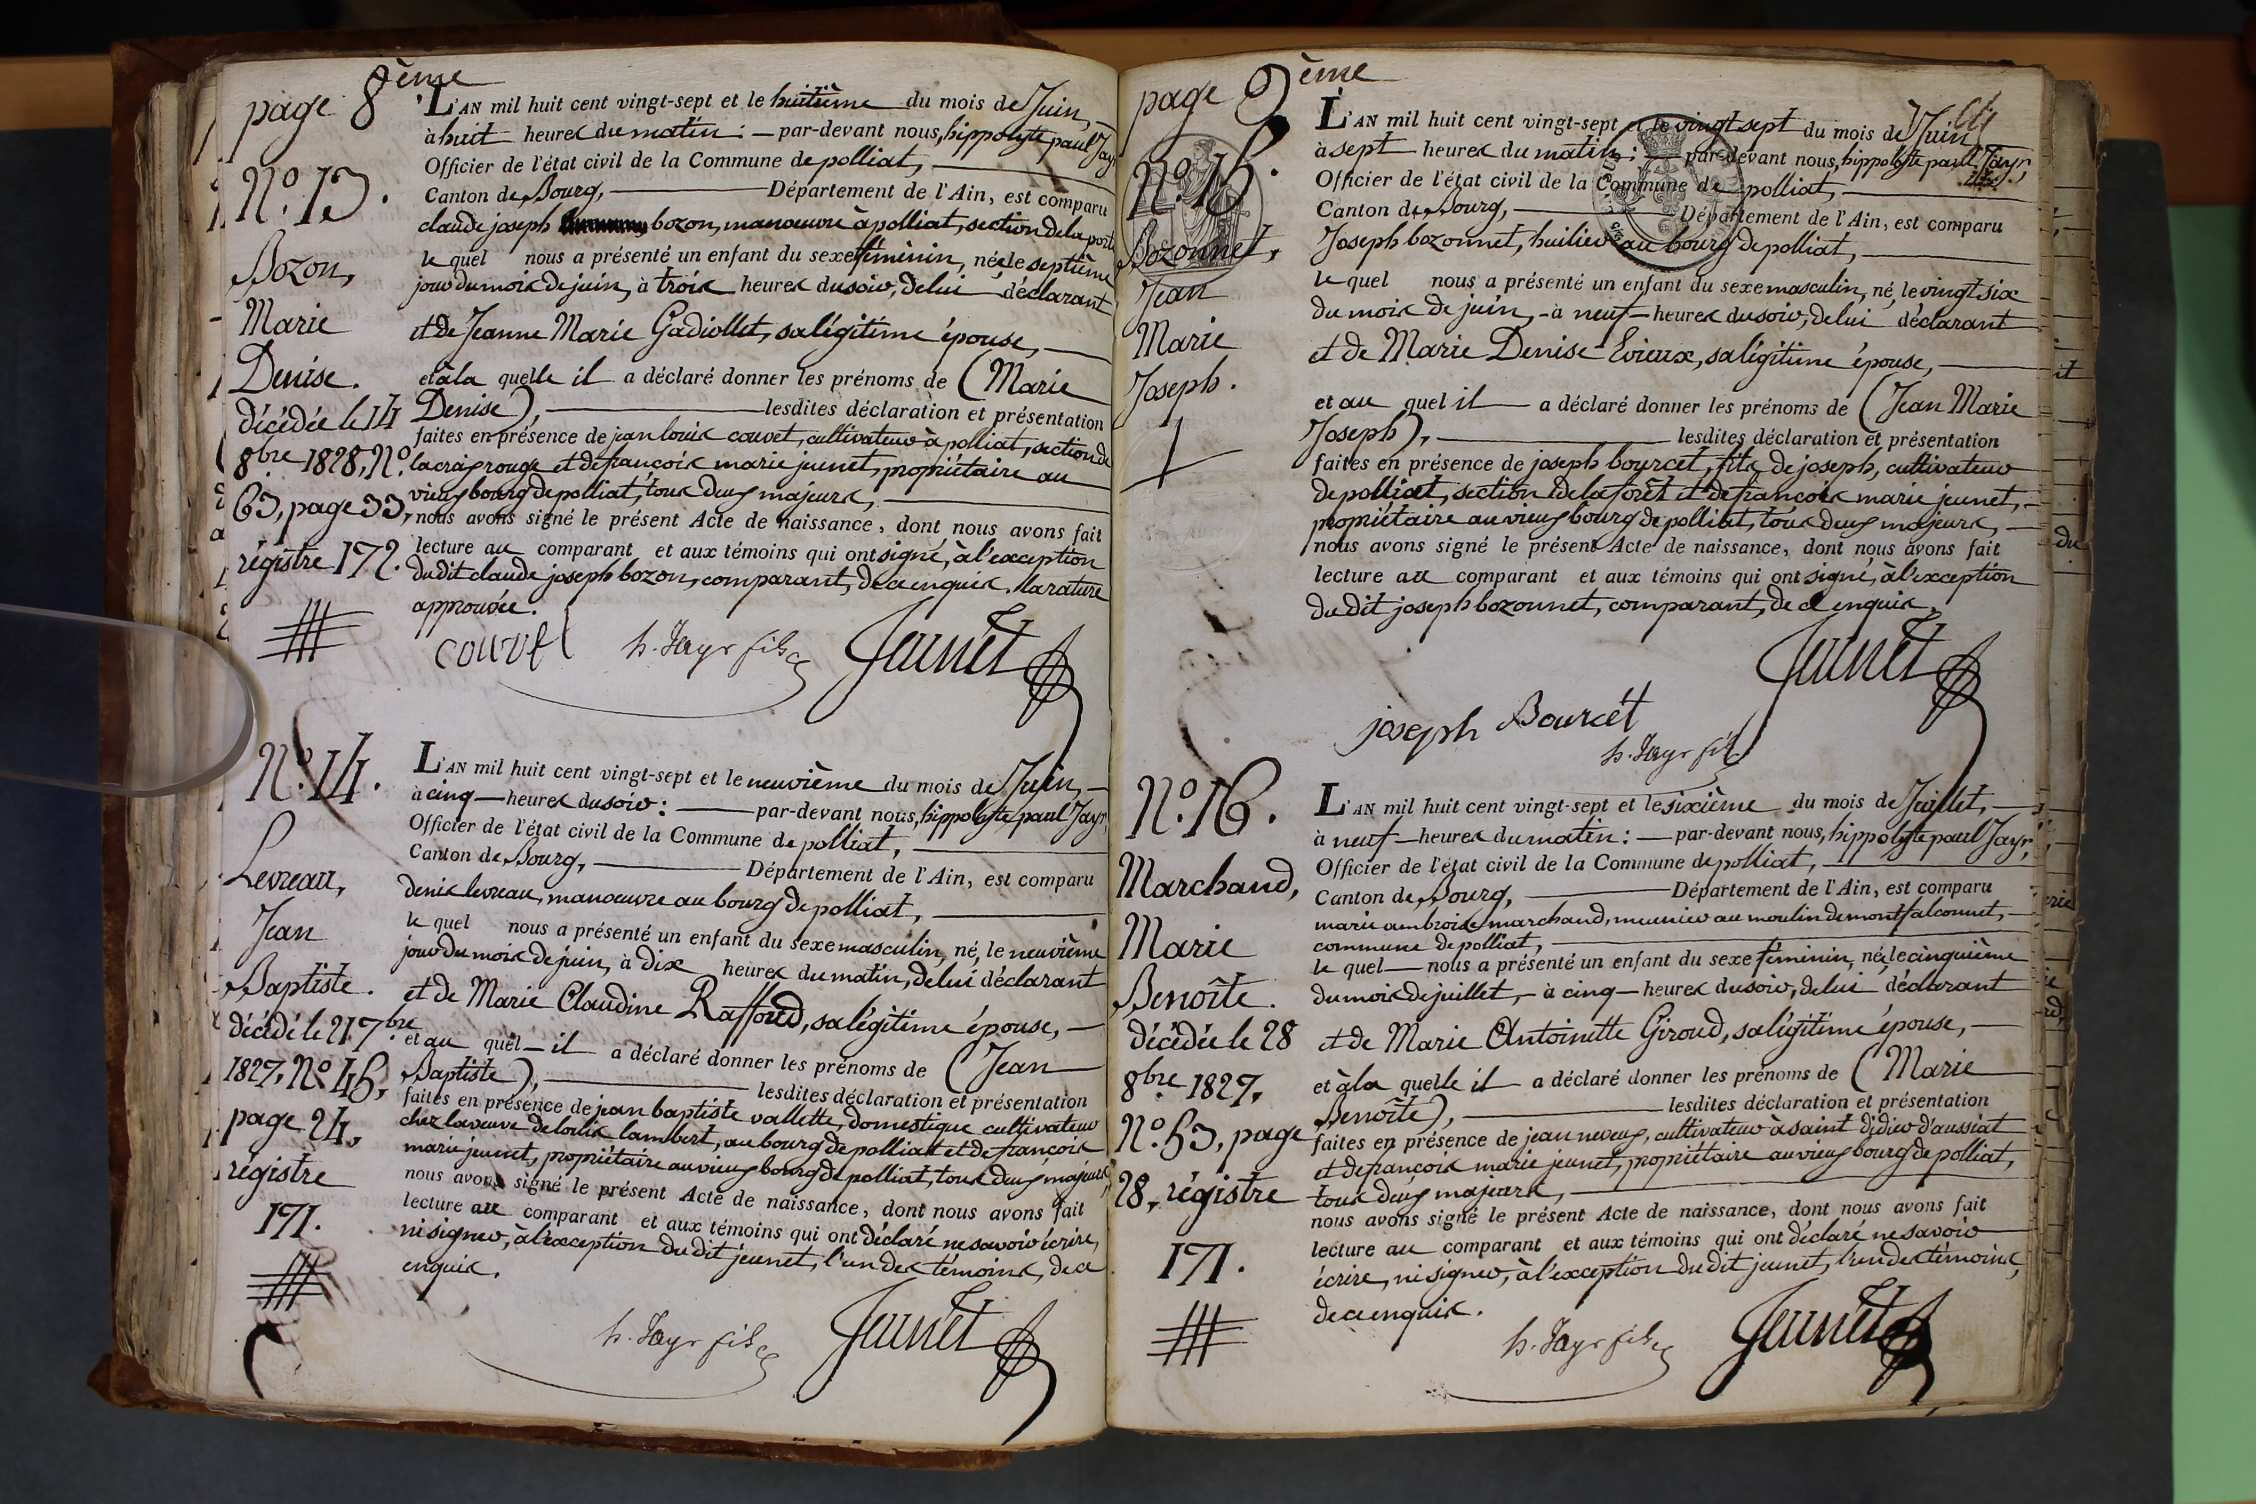 page 8ème
N.o 13.
Bozon,
Marie
Denise.
décédée le 14
8bre 1828, N.o
63, page 33,
régistre 172.
L'AN mil huit cent vingt-sept et le huitième du mois de Juin,
à huit heures du matin : par-devant nous, hippolyte paul Jayr
Officier de l'état civil de la Commune de polliat,
Canton de Bourg, Département de l'Ain, est comparu
claude joseph bozon, manœuvre à polliat, section de la porte
le quel nous a présenté un enfant du sexe féminin, née, le septième
jour du mois de juin, à trois heures du soir, de lui déclarant
et de Jeanne Marie Gadiollet, sa légitime épouse,
et à la quelle il a déclaré donner les prénoms de (Marie
Denise), lesdites déclaration et présentation
faites en présence de jean louis couvet, cultivateur à polliat, section de
la craz rouge et de françois marie jeunet, propriétaire au
vieux bourg de polliat, tous deux majeurs,
nous avons signé le présent Acte de naissance, dont nous avons fait
lecture au comparant et aux témoins qui ont signé, à l'exception
du dit claude joseph bozon, comparant, de ce enquis. la rature
approuvée.
couvet h. Jayr fils Jeunet
N.o 14.
Levreau,
Jean
Baptiste.
décédé le 21 7bre
1827, N.o 45,
page 24,
régistre
171.
L'AN mil huit cent vingt-sept et le neuvième du mois de Juin,
à cinq heures du soir : par-devant nous, hippolyte paul Jayr,
Officier de l'état civil de la Commune de polliat,
Canton de Bourg, Département de l'Ain, est comparu
denis levreau, manœuvre au bourg de polliat,
le quel nous a présenté un enfant du sexe masculin, né, le neuvième
jour du mois de juin, à dix heures du matin, de lui déclarant
et de Marie Claudine Raffoud, sa légitime épouse,
et au quel il a déclaré donner les prénoms de (Jean
Baptiste), lesdites déclaration et présentation
faites en présence de jean baptiste vallette, domestique cultivateur
chez la veuve de loüis lambert, au bourg de polliat et de françois
marie jeunet, propriétaire au vieux bourg de polliat, tous deux majeurs,
nous avons signé le présent Acte de naissance, dont nous avons fait
lecture au comparant et aux témoins qui ont déclaré ne savoir écrire,
ni signer, à l'exception du dit jeunet, l'un des témoins, de ce
enquis.
h. Jayr fils Jeunet
page 9ème
N.o 15.
Bozonnet,
Jean
Marie
Joseph.
L'AN mil huit cent vingt-sept et le vingt sept du mois de Juin
à sept heures du matin : par-devant nous, hippolyte paul Jayr,
Officier de l'état civil de la Commune de polliat,
Canton de Bourg, Département de l'Ain, est comparu
Joseph bozonnet, huilier au bourg de polliat,
le quel nous a présenté un enfant du sexe masculin, né, le vingt six
du mois de juin, à neuf heures du soir, de lui déclarant
et de Marie Denise Evieux, sa légitime épouse,
et au quel il a déclaré donner les prénoms de (Jean Marie
Joseph), lesdites déclaration et présentation
faites en présence de joseph bourcet, fils de joseph, cultivateur
de polliat, section de la forêt et de françois marie jeunet,
propriétaire au vieux bourg de polliat, tous deux majeurs,
nous avons signé le présent Acte de naissance, dont nous avons fait
lecture au comparant et aux témoins qui ont signé, à l'exception
du dit joseph bozonnet, comparant, de ce enquis.
Jeunet
joseph Bourcét
h. Jayr fils
N.o 16.
Marchand,
Marie
Benoîte.
décédée le 28
8bre 1827,
N.o 53, page
28, régistre
171.
L'AN mil huit cent vingt-sept et le sixième du mois de Juillet,
à neuf heures du matin : par-devant nous, hippolyte paul Jayr,
Officier de l'état civil de la Commune de polliat,
Canton de Bourg, Département de l'Ain, est comparu
marie ambroise marchand, meunier au moulin de montfalconnet,
commune de polliat,
le quel nous a présenté un enfant du sexe féminin, née, le cinquième
du mois de juillet, à cinq heures du soir, de lui déclarant
et de Marie Antoinette Giroud, sa légitime épouse,
et à la quelle il a déclaré donner les prénoms de (Marie
Benoîte), lesdites déclaration et présentation
faites en présence de jean neveux, cultivateur à saint didier d'aussiat
et de françois marie jeunet, propriétaire au vieux bourg de polliat,
tous deux majeurs,
nous avons signé le présent Acte de naissance, dont nous avons fait
lecture au comparant et aux témoins qui ont déclaré ne savoir
écrire, ni signer, à l'exception du dit jeunet, l'un des témoins,
de ce enquis.
h. Jayr fils Jeunet